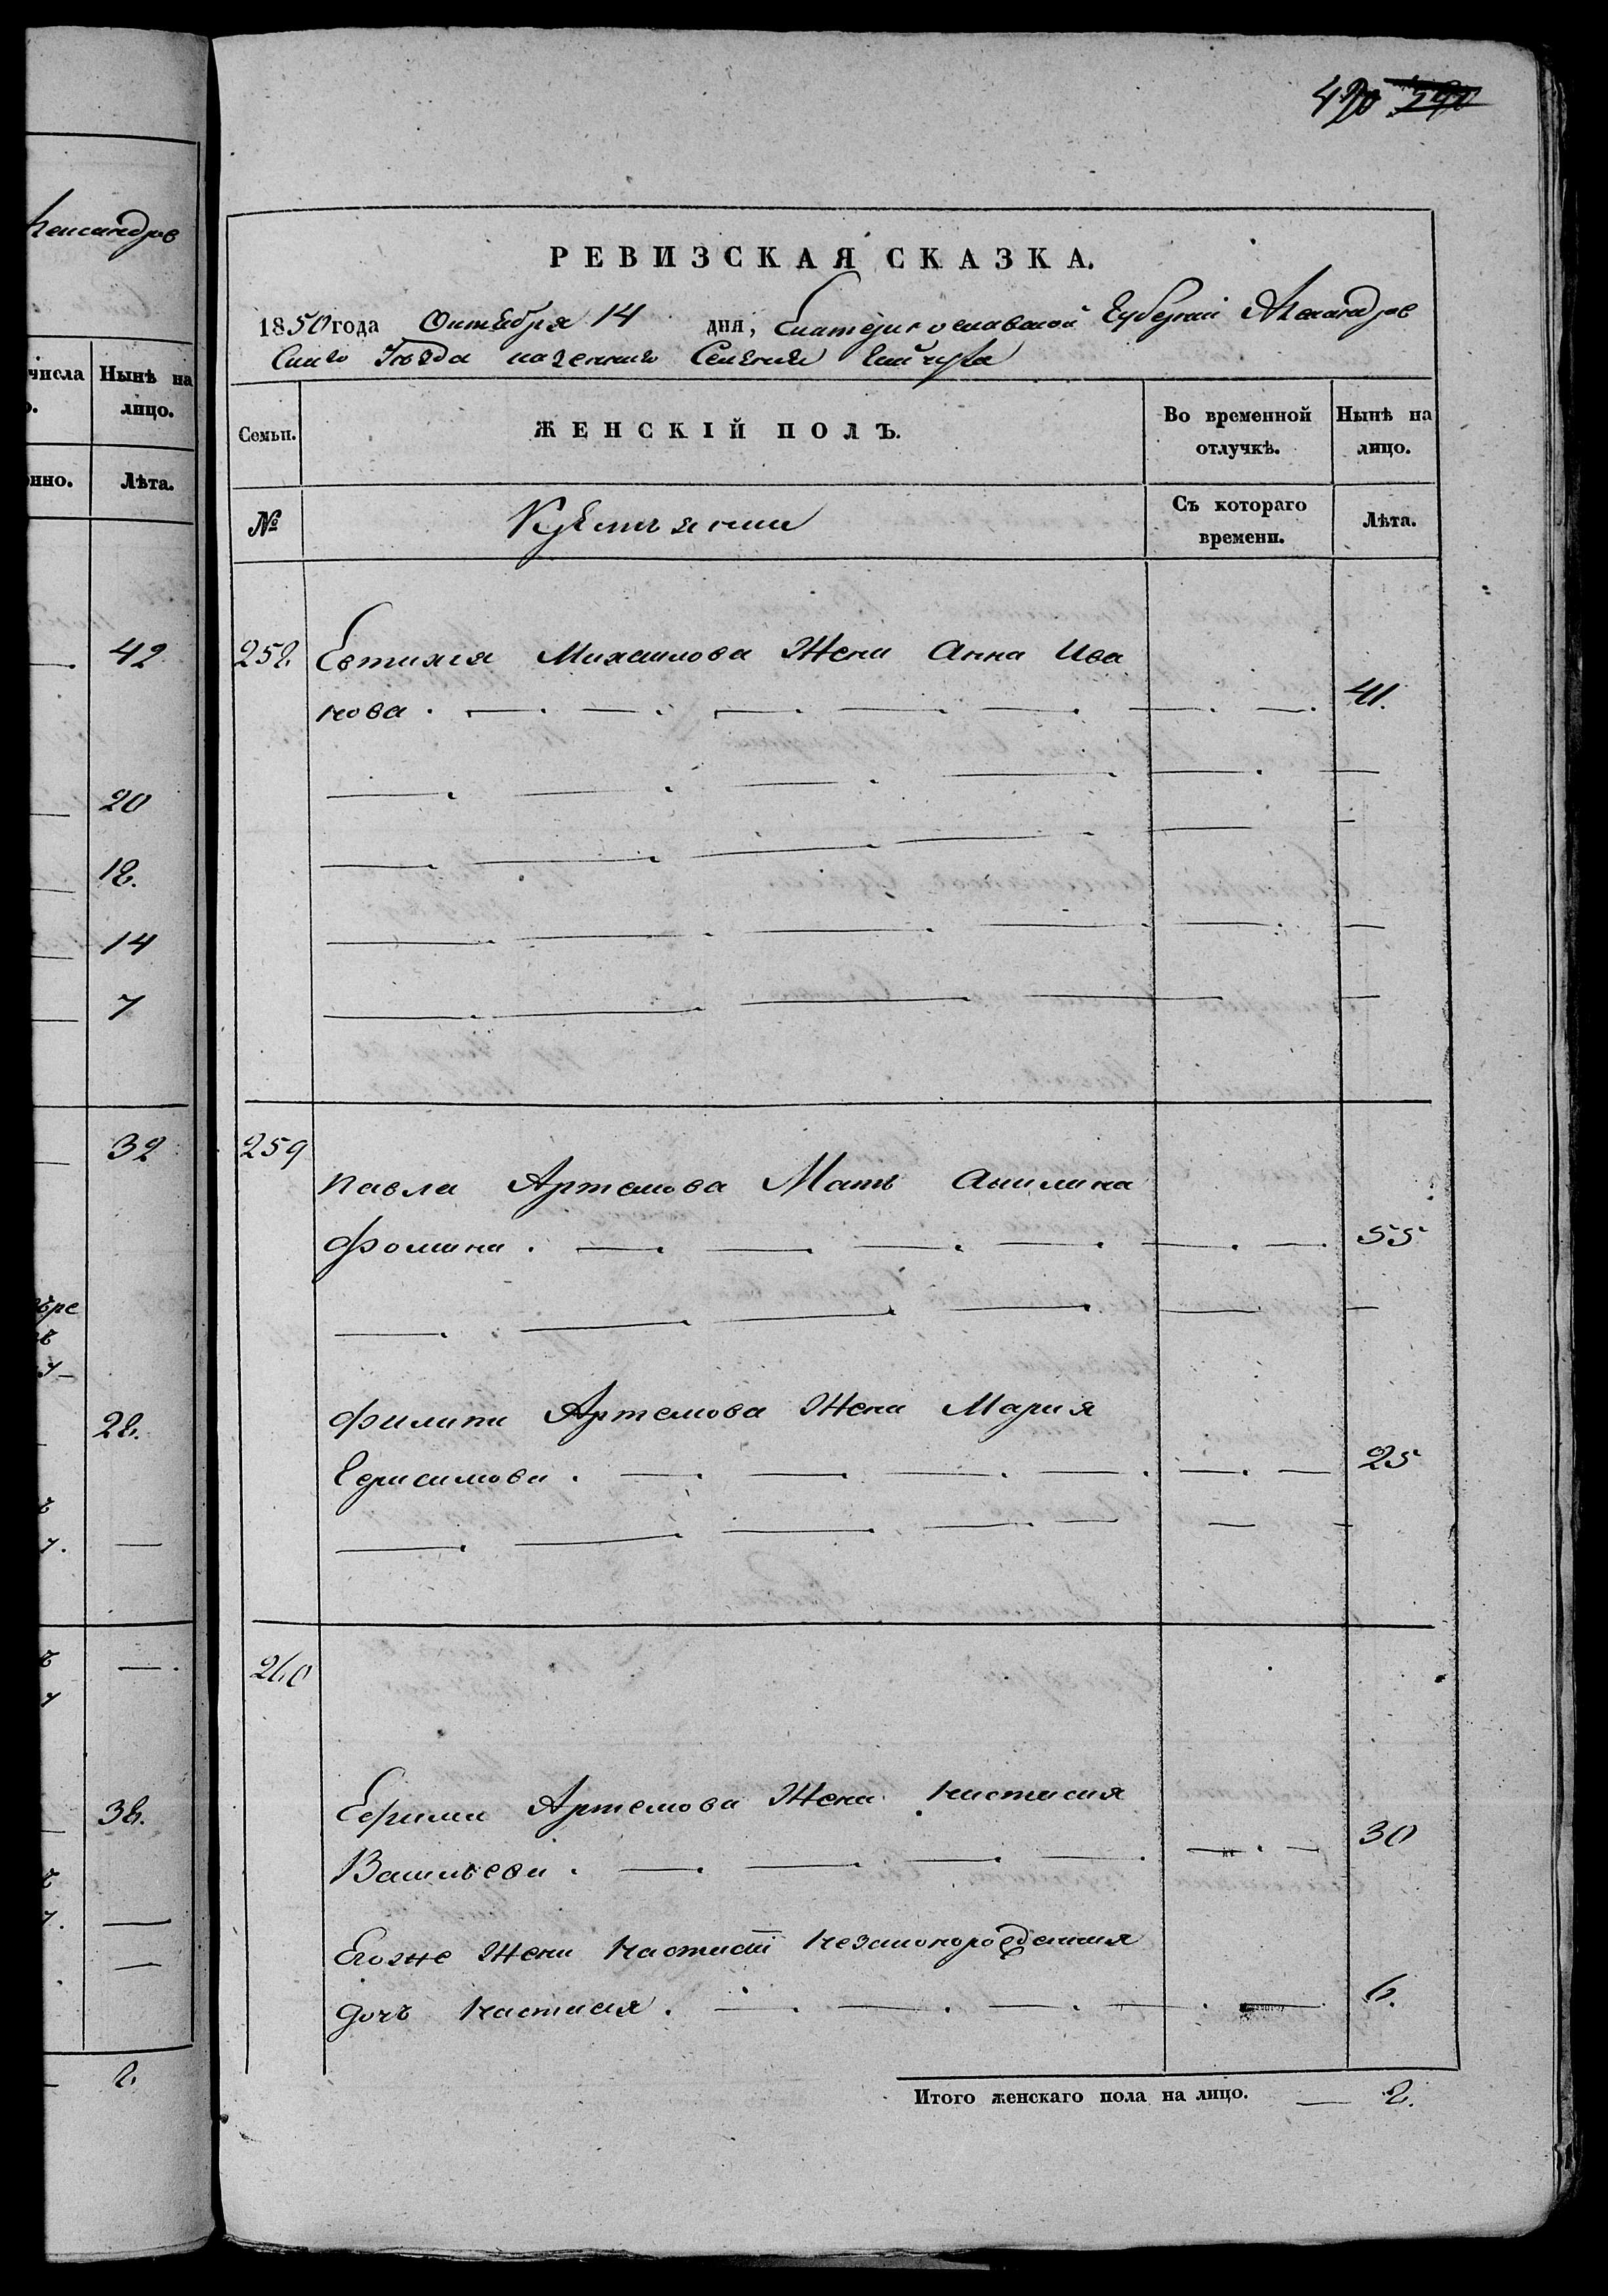 420 240
РЕВИЗСКАЯ СКАЗКА.
1850 года Октября 14 дня, Екатеринославской Губернии Александров
скаго Уезда казеннаго Селения
Семьи.
ЖЕНСКІЙ ПОЛЪ.
Во временной отлучкѣ.
Нынѣ на лицо.
№
Крестьянки
Съ котораго времени.
Лѣта.
258. Евтихия Михаилова Жена Анна Ива
нова . 41.
259
Павла Артемова Мать Акилина
Фомина . 55
Филипа Артемова Жена Мария
Герасимова . 25
260
Ефрима Артемова Жена Настасия
Васильева . 30
Егоже Жены Настасіи Незаконорожденная
дочь Настасия . 6.
Итого женскаго пола на лицо. — 
лександров
числа
Нынѣ на лицо.
нно.
Лѣта.
42
20
18.
14
7
32
28.
38.